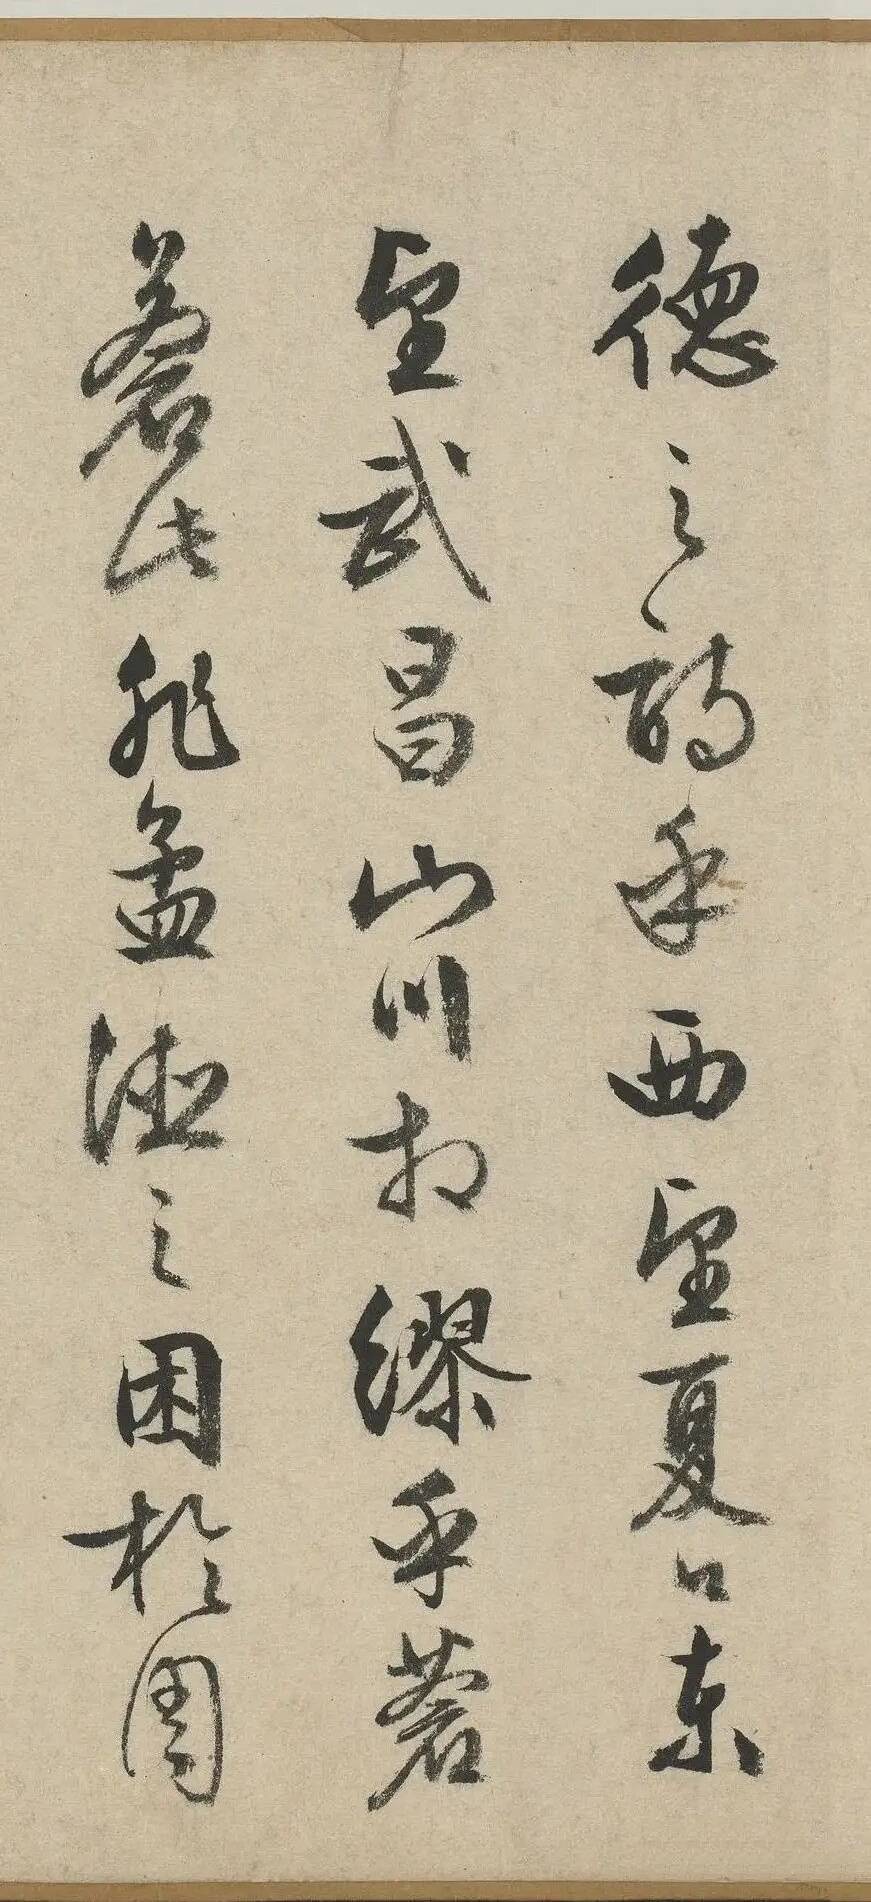 德之詩乎西望夏口東
望武昌山川相繆乎蒼
蒼此非孟德之困於周